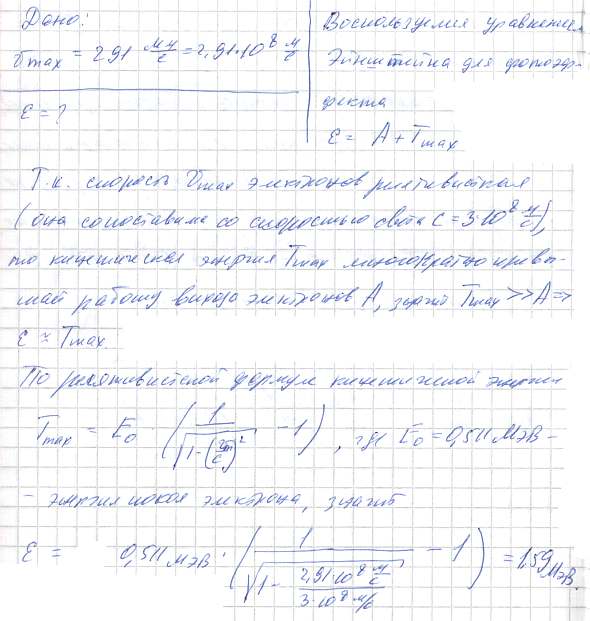 Дано:
υmax = 291 Мм/с = 2,91·10^8 м/с
ε = ?
Воспользуемся уравнением
Эйнштейна для фотоэф-
фекта
ε = A + Tmax
Т.к. скорость υmax электронов релятивистская
(она сопоставима со скоростью света c = 3·10^8 м/с),
то кинетическая энергия Tmax многократно превы-
шает работу выхода электронов A, значит Tmax >> A =>
ε ≈ Tmax.
По релятивистской формуле кинетической энергии
Tmax = E0 · (1/√(1-(υm/c)^2) - 1), где E0 = 0,511 МэВ -
- энергия покоя электрона, значит
ε = 0,511 МэВ · (1/√(1 - 2,91·10^8 м/с / 3·10^8 м/с) - 1) = 1,59 МэВ.